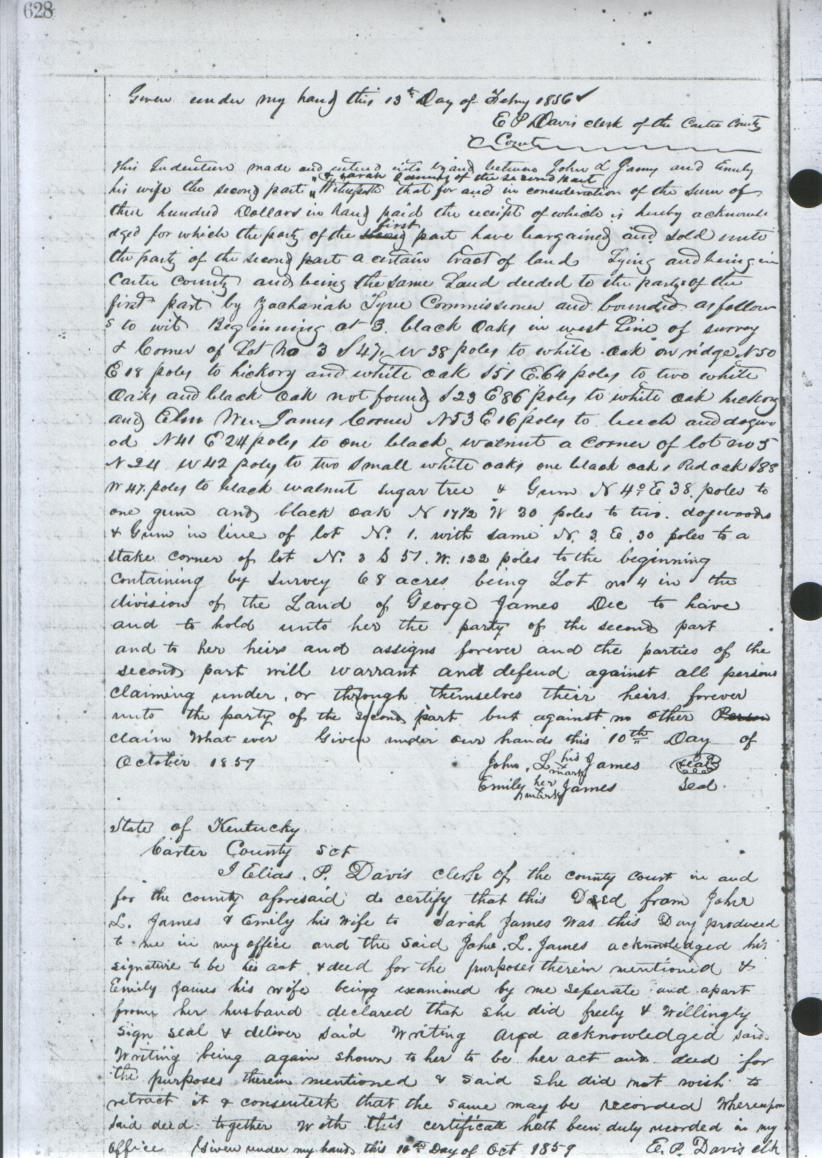 628
Given under my hand this 13th Day of Febuy 1856
E P Davis clerk of the Carter County
Court
This Indenture made and entered into by and between John L James and Emily
& Sarah James of the second part
his wife the second part Witnesseth that for and in consideration of the sum of
three hundred Dollars in hand paid the receipt of which is hereby acknowle
first
dged for which the party of the part have bargained and sold unto
the party of the second part a certain tract of land Lying and being in
Carter County and being the same Land deeded to the party of the
first part by Zachariah Tyree Commissioner and bounded as follow
s to wit Beginning at 3 black Oaks in west Line of survey
& Corner of Lot No 3 S 47 W 38 poles to white oak on ridge N50
E 18 poles to hickory and white oak S51 E 64 poles to two white
Oaks and black Oak not found S23 E86 poles to white oak hickory
and Elm Wm James Corner N53 E 16 poles to beech and dogwo
od N41 E 24 poles to one black walnut a corner of lot no 5
N24 W42 poles to two small white oaks one black oak & Red oak S88
W 47 poles to black walnut sugar tree & Gum N 4° E 38 poles to
one gum and black oak N 17½ W 30 poles to two dogwoods
& Gum in line of lot No. 1. with same N. 3. E. 30 poles to a
stake corner of lot No. 3 S 51. W. 122 poles to the beginning
containing by survey 68 acres being Lot no 4 in the
division of the Land of George James Dec to have
and to hold unto her the party of the second part
and to her heirs and assigns forever and the parties of the
second part will warrant and defend against all persons
claiming under, or through themselves their heirs forever
unto the party of the second part but against no other Person
claim What ever Given under our hands this 10th Day of
October 1859 John. L his mark James seal
Emily her mark James Seal
State of Kentucky
Carter County Sct
I Elias. P. Davis clerk of the county court in and
for the county aforesaid do certify that this Deed from John
L. James & Emily his Wife to Sarah James Was this Day produced
to me in my office and the said John. L. James acknowledged his
signature to be his act & deed for the purposes therein mentioned &
Emily James his wife being examined by me seperate and apart
from her husband declared that she did freely & Willingly
sign seal & deliver said Writing and acknowledged said
Writing being again shown to her to be her act and deed for
the purposes therein mentioned & said she did not wish to
retract it & consenteth that the same may be recorded Whereupon
said deed together With this certificate hath been duly recorded in my
office Given under my hand this 10th Day of Oct 1859 E. P. Davis clk